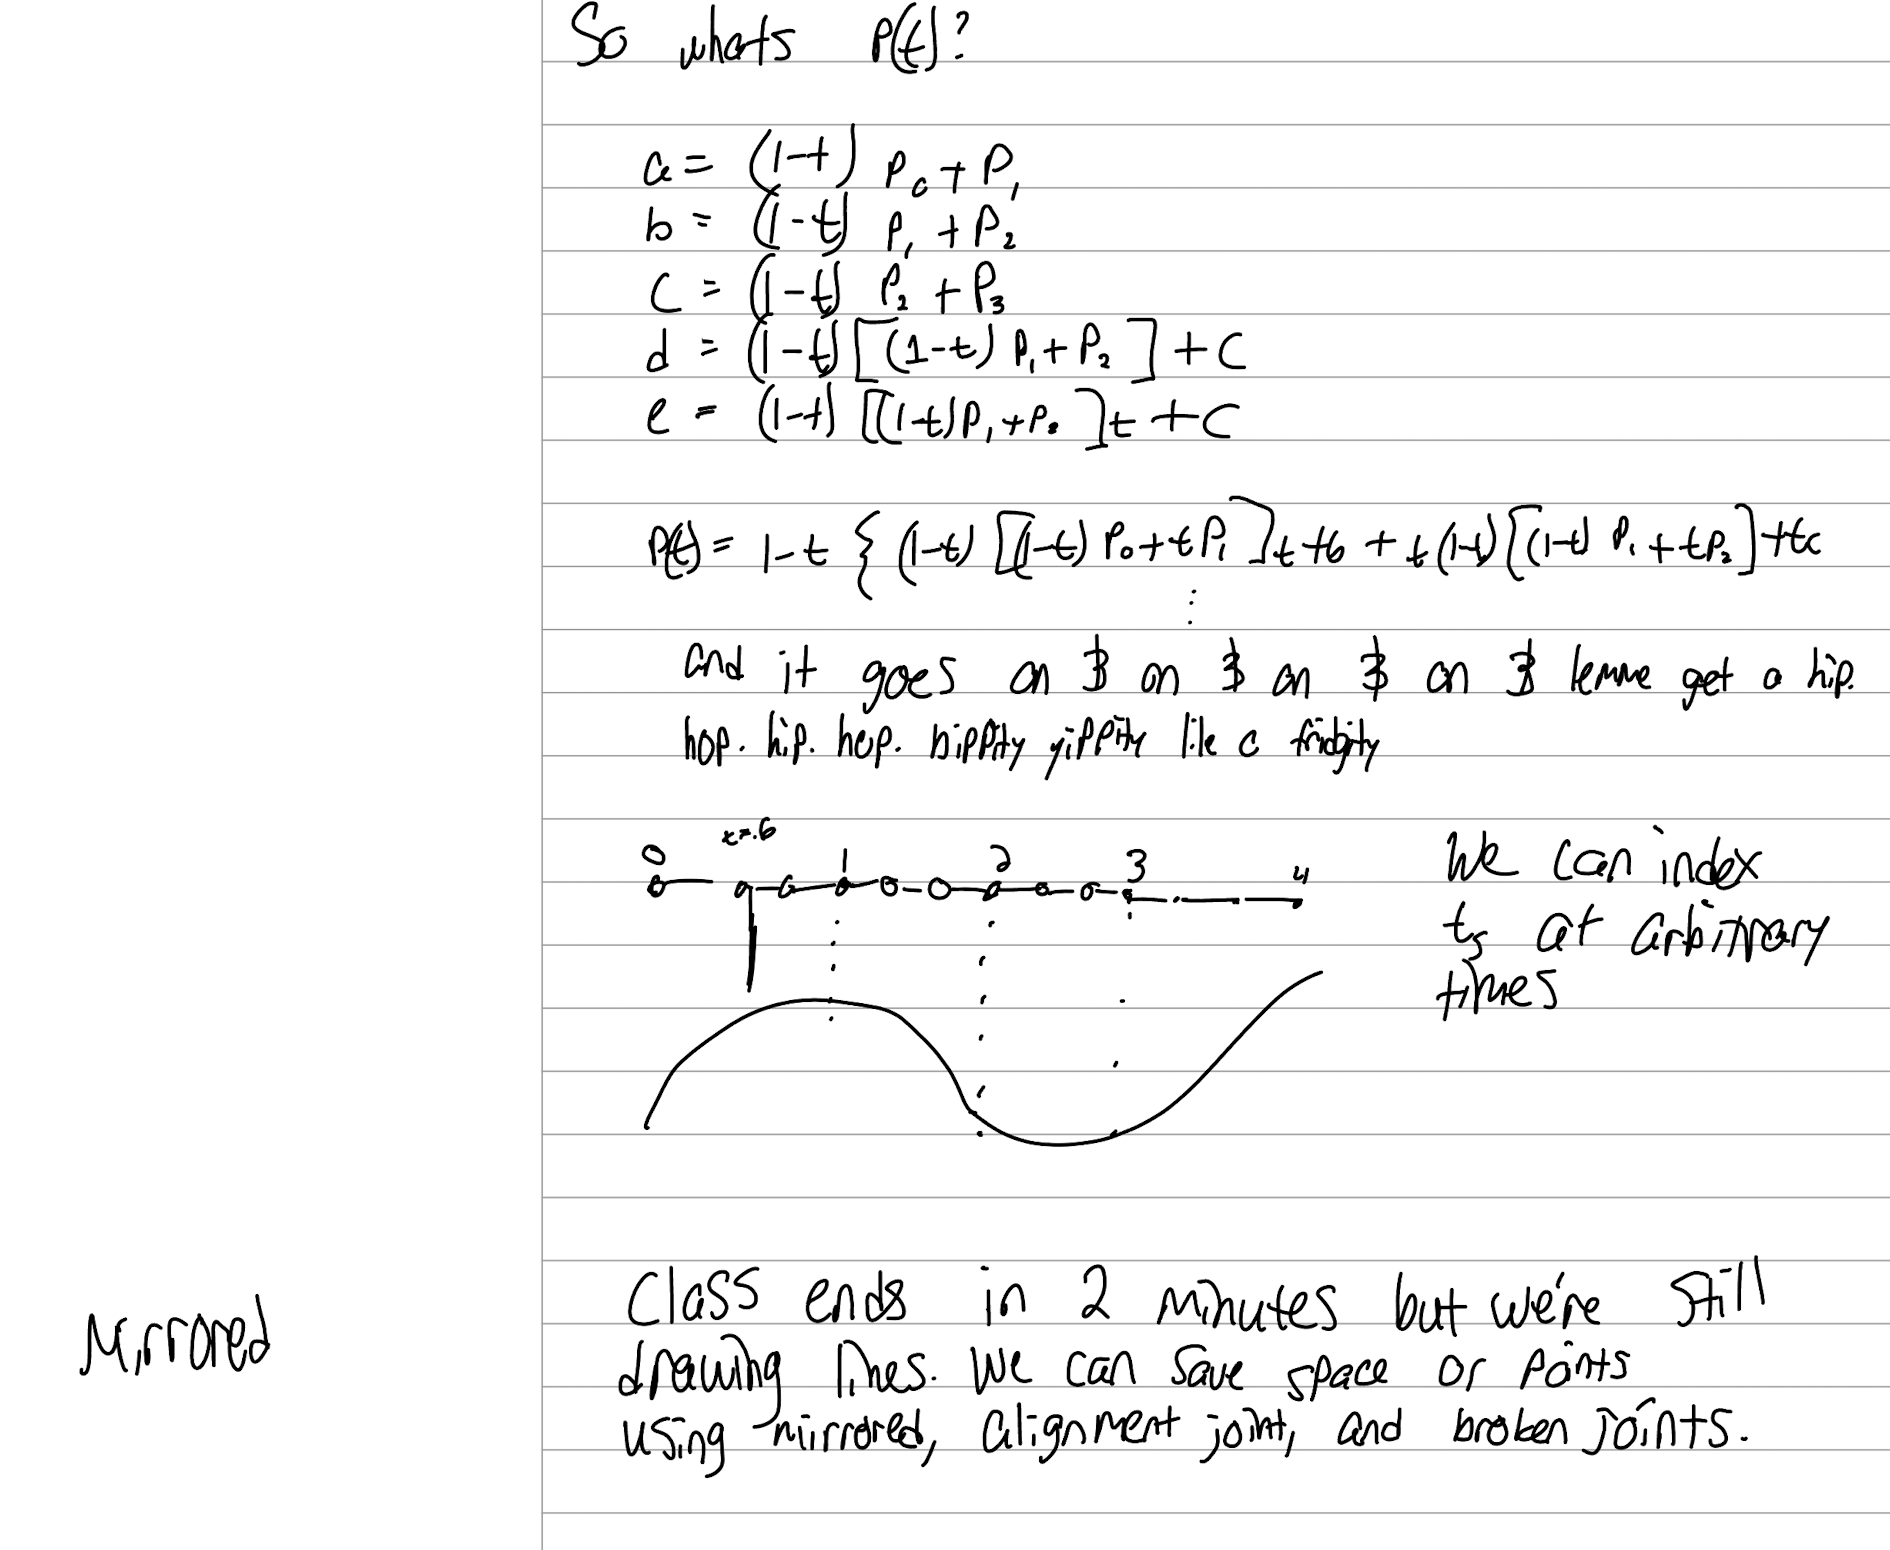 So whats P(t)?
a = (1-t) P₀ + P₁
b = (1-t) P₁ + P₂
c = (1-t) P₂ + P₃
d = (1-t) [(1-t) P₁ + P₂] + C
e = (1-t) [(1-t) P₁ + P₂]t + C
P(t) = 1-t { (1-t) [(1-t) P₀ + t P₁]t + b + t (1-t) [(1-t) P₁ + t P₂] + tc
⋮
and it goes on & on & on & on & lemme get a hip.
hop. hip. hop. bippity yippity like a fridgity
t=.6
0 1 2 3 4
We can index
ts at arbitrary
times
Mirrored
Class ends in 2 minutes but we're still
drawing lines. We can save space or points
using mirrored, alignment joint, and broken joints.